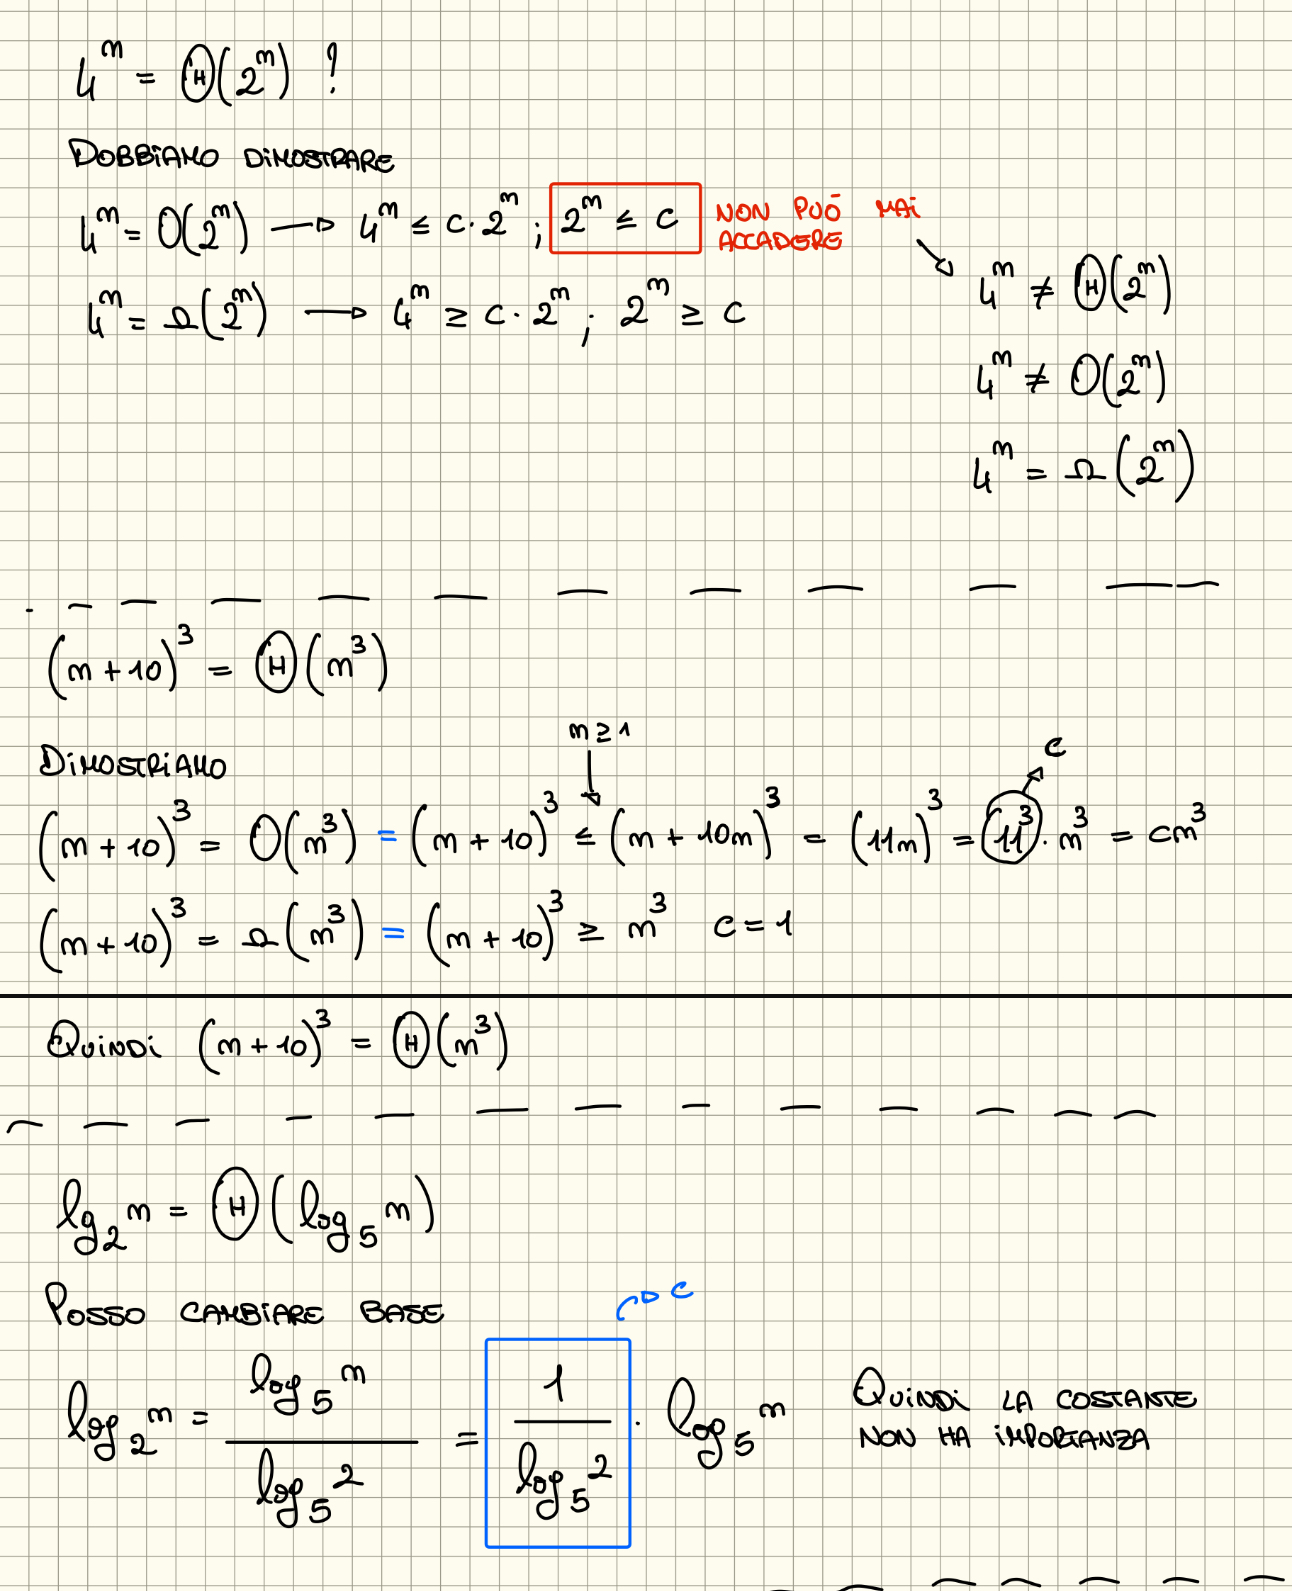 4^m = Θ(2^m) ?
DOBBIAMO DIMOSTRARE
4^m = O(2^m) → 4^m ≤ c·2^m ; 2^m ≤ c NON PUÒ MAI ACCADERE
4^m = Ω(2^m) → 4^m ≥ c·2^m ; 2^m ≥ c
4^m ≠ Θ(2^m)
4^m ≠ O(2^m)
4^m = Ω(2^m)
(m+10)^3 = Θ(m^3)
DIMOSTRIAMO
m ≥ 1
c
(m+10)^3 = O(m^3) = (m+10)^3 ≤ (m+10m)^3 = (11m)^3 = 11^3 · m^3 = cm^3
(m+10)^3 = Ω(m^3) = (m+10)^3 ≥ m^3 c = 1
QUINDI (m+10)^3 = Θ(m^3)
lg_2 m = Θ(log_5 m)
POSSO CAMBIARE BASE
c
log_2 m = log_5 m / log_5 2 = 1 / log_5 2 · log_5 m
QUINDI LA COSTANTE
NON HA IMPORTANZA